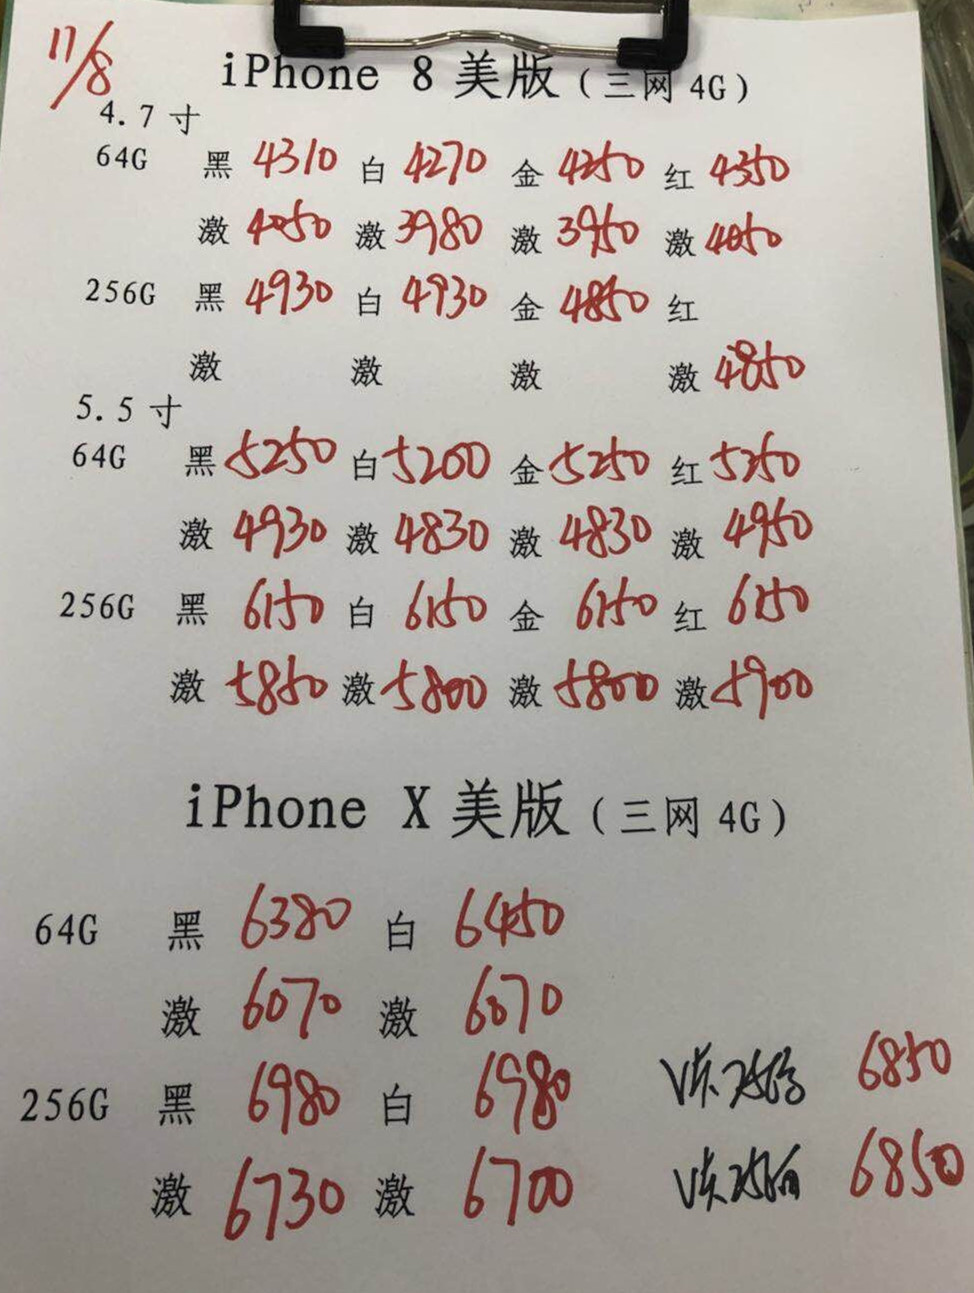 11/8
iPhone 8 美版（三网 4G）
4.7 寸
64G 黑 4310 白 4270 金 4250 红 4350
激 4050 激 3980 激 3950 激 4050
256G 黑 4930 白 4930 金 4850 红
激 激 激 激 4850
5.5 寸
64G 黑 5250 白 5200 金 5250 红 5250
激 4930 激 4830 激 4830 激 4950
256G 黑 6150 白 6150 金 6150 红 6150
激 5850 激 5800 激 5800 激 5900
iPhone X 美版（三网 4G）
64G 黑 6380 白 6450
激 6070 激 6070
256G 黑 6980 白 6980 6850
激 6730 激 6700 6850